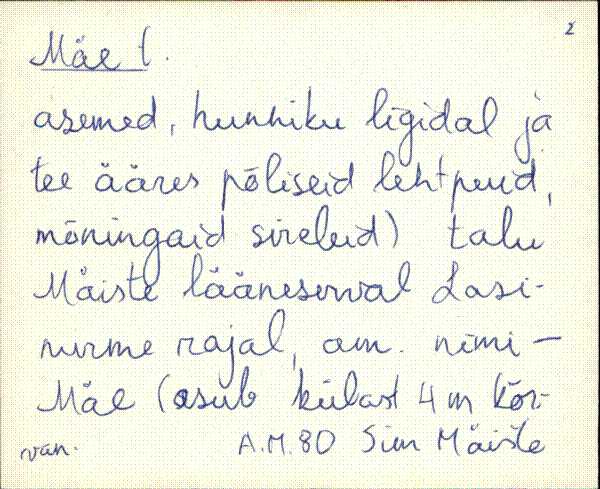 2
Mäe t.
asemed, hunniku ligidal ja
tee ääres põliseid lehtpuid,
mõningaid sireleid) talu
Mäiste lääneserval Lasi-
nurme rajal, am. nimi –
Mäe (asub külast 4 m kõr-
van. A.M. 80 Sim Mäiste